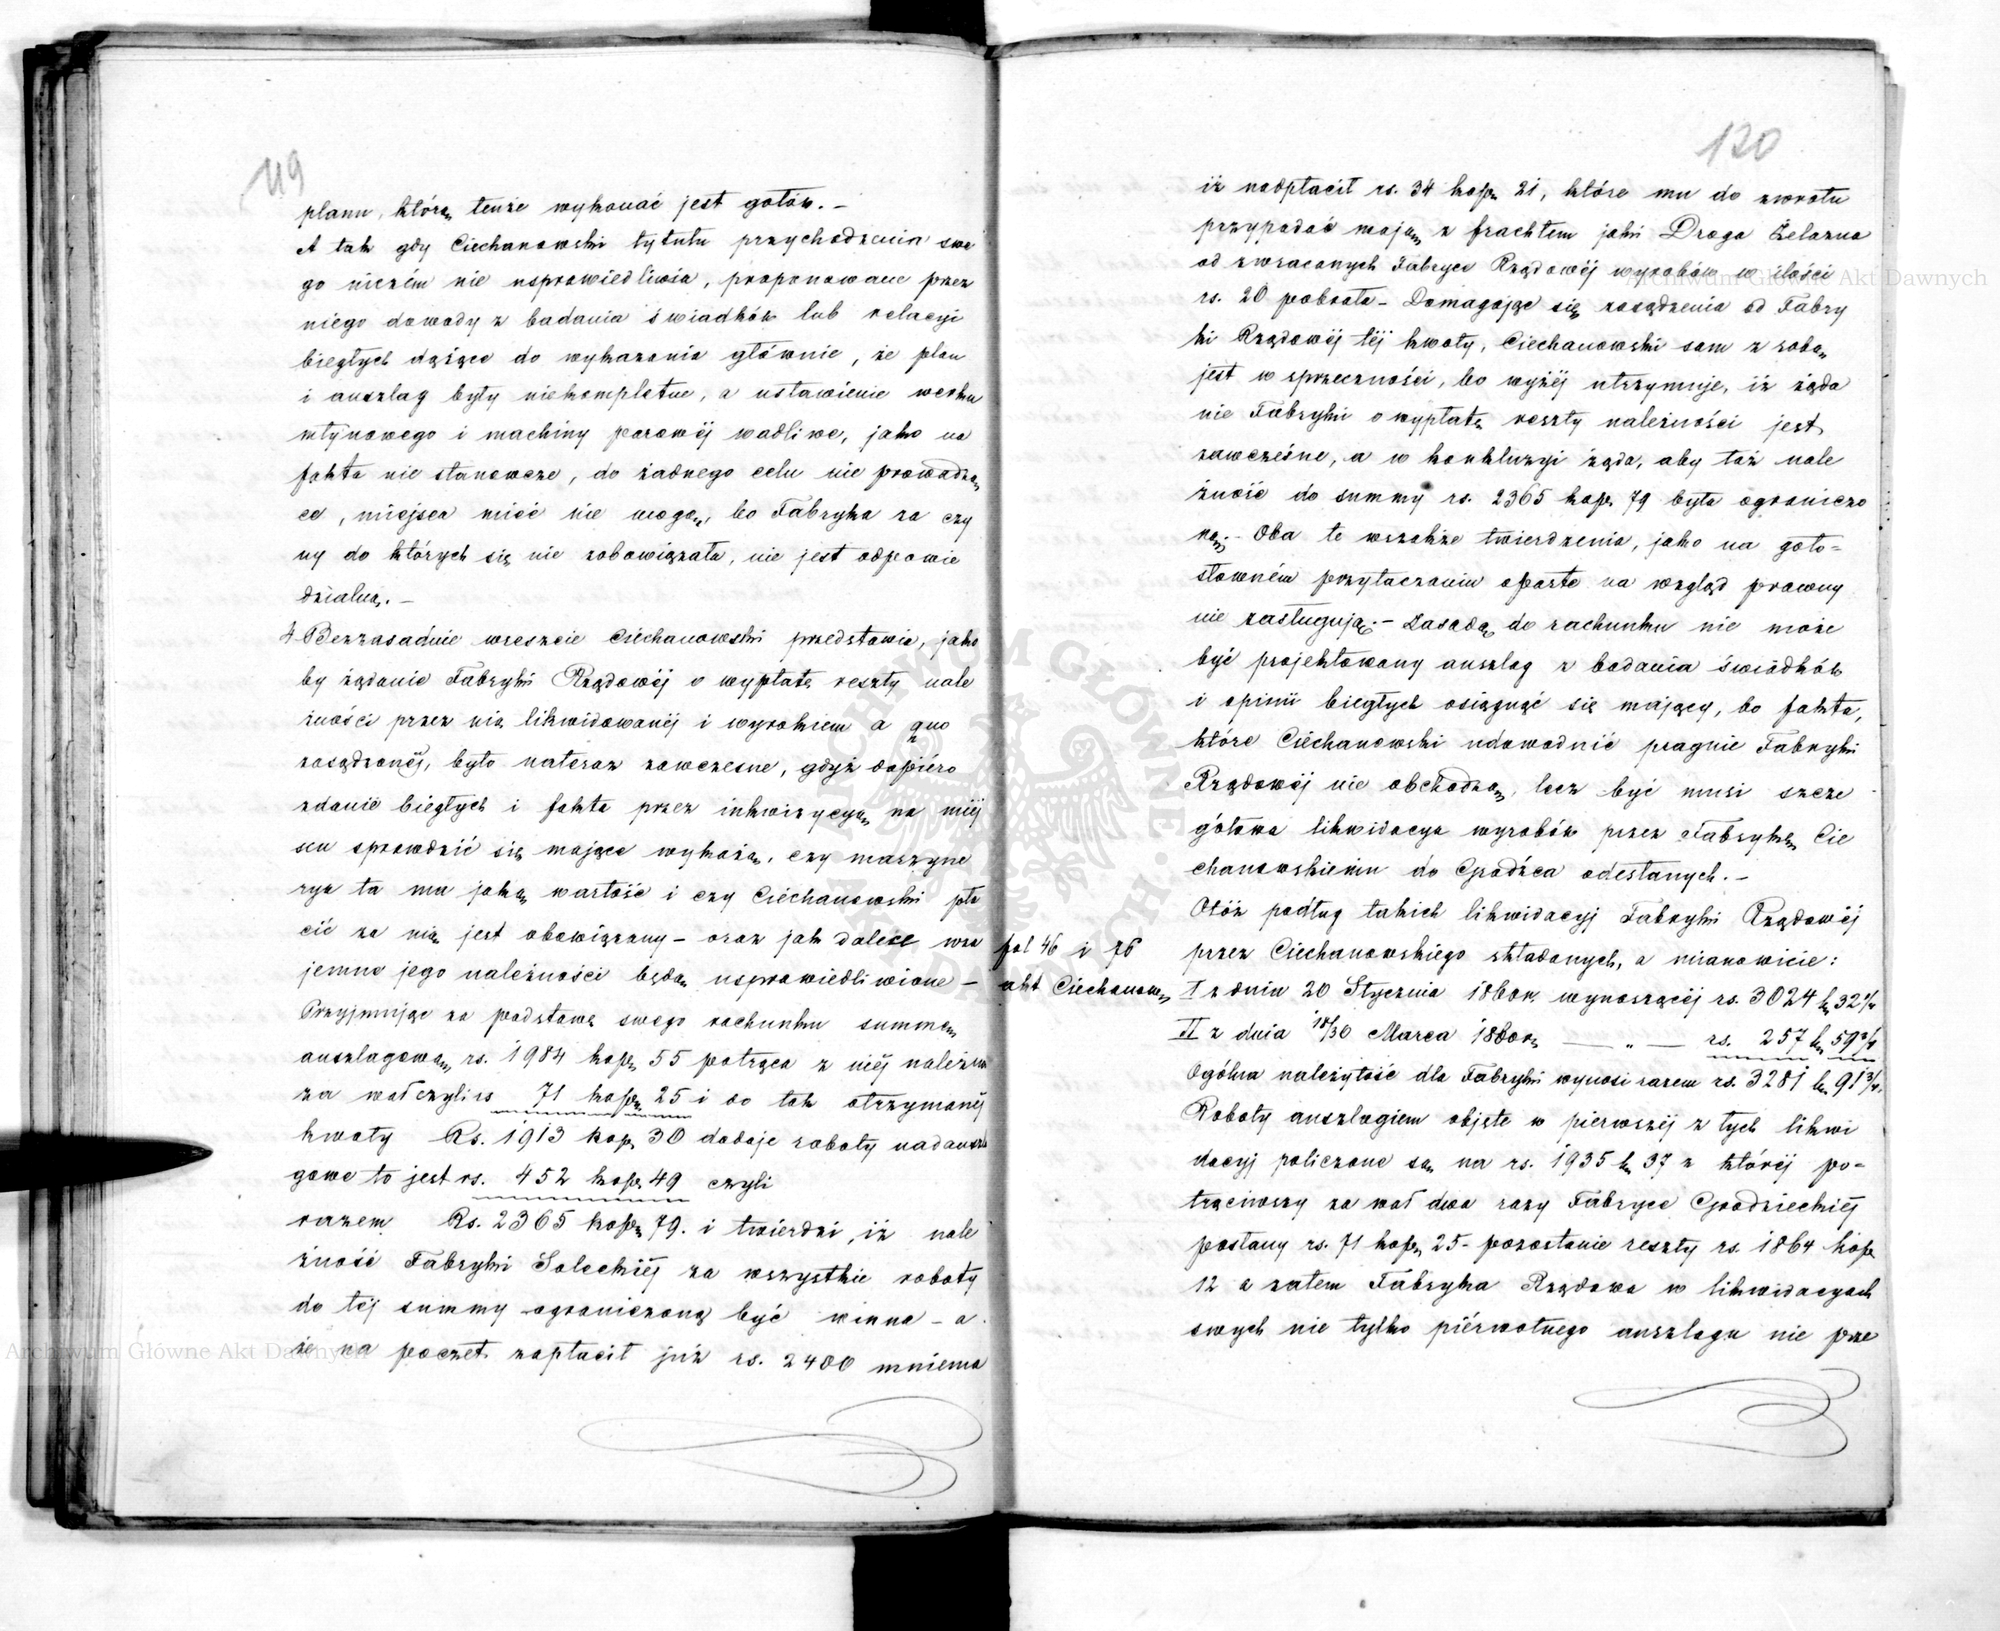 119
planu, którą tenże wykonać jest gotów. –
A tak gdy Ciechanowski tytułu przychodzenia swe
go niczém nie usprawiedliwia, proponowane przez
niego dowody z badania świadków lub relacyi
biegłych dążące do wykazania głównie, że plan
i anszlag były niekompletne, a ustawienie werku
młynowego i machiny parowéj wadliwe, jako na
fakta nie stanowcze, do żadnego celu nie prowadzą
ce, miejsca mieć nie mogą, bo Fabryka za czy
ny do których się nie zobowiązała, nie jest odpowie
dzialną. –
4 Bezzasadnie wreszcie Ciechanowski przedstawia, jako
by żądanie Fabryki Rządowéj o wypłatę reszty nale
żności przez nią likwidowanéj i wyrokiem a quo
zasądzonéj, było nateraz zawczesne, gdyż dopiéro
zdanie biegłych i fakta przez inkwizycyą na miéj
scu sprawdzić się mające wykażą, czy maszyne
rya ta ma jaką wartość i czy Ciechanowski pła
cić za nią jest obowiązany – oraz jak dalece wza
jemne jego należności będą usprawiedliwione –
Przyjmując za podstawę swego rachunku summę
anszlagową rs. 1984 kop. 55 potrąca z niéj należność
za wał czyli rs 71 kop. 25 i do tak otrzymanéj
kwoty Rs. 1913 kop. 30 dodaje roboty nadanszla
gowe to jest rs. 452 kop. 49 czyli
razem Rs. 2365 kop. 79. i twierdzi, iż nale
żność Fabryki Soleckiéj za wszystkie roboty
do téj summy ograniczoną być winna – a
że na poczet zapłacił już rs. 2400 mniema
120
iż nadpłacił rs. 34 kop. 21, które mu do zwrotu
przypadać mają z frachtem jaki Droga Żelazna
od zwracanych Fabryce Rządowéj wyrobów w ilości
rs. 20 pobrała – Domagając się zasądzenia od Fabry
ki Rządowéj téj kwoty, Ciechanowski sam z sobą
jest w sprzeczności, bo wyżéj utrzymuje, iż żąda
nie Fabryki o wypłatę reszty należności jest
zawcześne, a w konkluzyi żąda, aby taż nale
żność do summy rs. 2365 kop. 79 była ograniczo
ną. – Oba te wszakże twierdzenia, jako na goło=
słowném przytaczaniu oparte na wzgląd prawny
nie zasługują. – Zasadą do rachunku nie może
być projektowany anszlag z badania świadków
i opinii biegłych osiągnąć się mający, bo fakta,
które Ciechanowski udowodnić pragnie Fabryki
Rządowéj nie obchodzą, lecz być musi szcze
gółowa likwidacya wyrobów przez Fabrykę Cie
chanowskiemu do Grodźca odesłanych. –
Otóż podług takich likwidacyj Fabryki Rządowéj
fol 46 i 76
akt Ciechanow.
przez Ciechanowskiego składanych, a mianowicie:
I z dnia 20 Stycznia 1860r. wynoszącéj rs. 3024 k. 32 1/4
II z dnia 18/30 Marca 1860r. — „ — rs. 257 k. 59 2/4
Ogólna należytość dla Fabryki wynosi razem rs. 3281 k. 91 3/4.
Roboty anszlagiem objęte w pierwszéj z tych likwi
dacyj policzone są na rs. 1935 k. 37 z któréj po=
trąciwszy za wał dwa razy Fabryce Grodzieckiéj
posłany rs. 71 kop. 25 – pozostanie reszty rs. 1864 kop.
12 a zatem Fabryka Rządowa w likwidacyach
swych nie tylko piérwotnego anszlagu nie prze
Archiwum Główne Akt Dawnych
Archiwum Główne Akt Dawnych